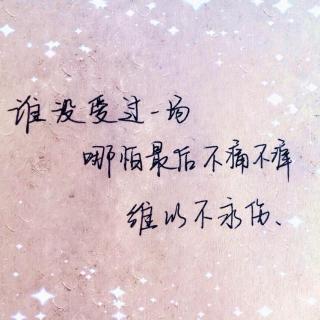 谁没爱过一场
哪怕最后不痛不痒
维以不永伤、